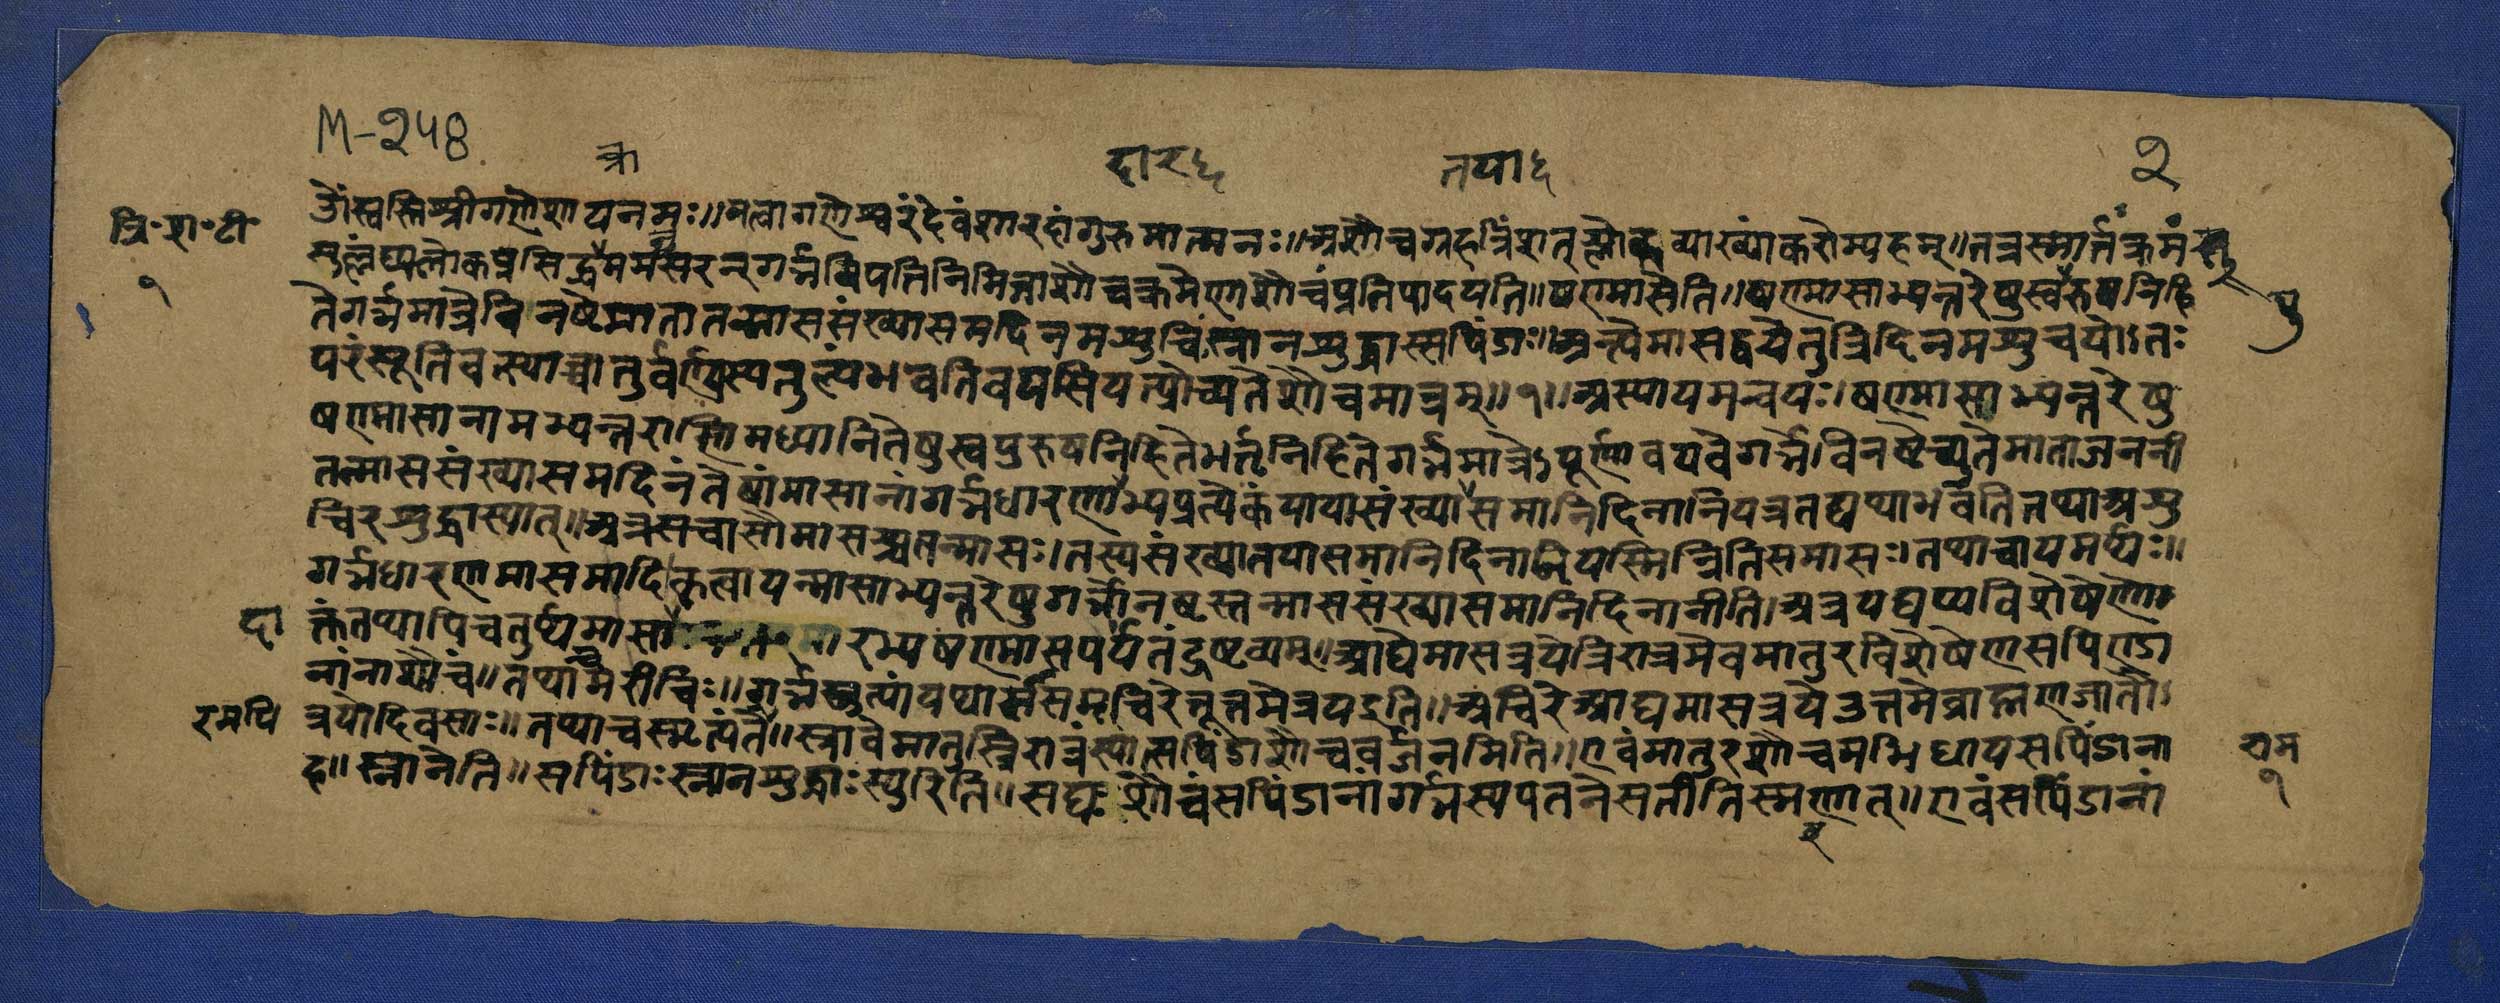 M-२५8
क्रा
दार६
तया६
२
ओं स्वस्ति श्रीगणेशाय नमः॥ नत्वा गणेश्वरं देवं शारदां गुरुमात्मनः॥ अशौचग्रहत्रिंशत्श्लोकव्याख्यां करोम्यहम्॥ तत्र स्मार्तं क्रमं
त्रि॰श॰टी॰
१
लोकप्रसिद्धक्रममनुसरन् गर्भविपत्तिनिमित्ताशौचक्रमेणाशौचं प्रतिपादयति॥ षण्मासेति॥ षण्मासाभ्यन्तरेषु स्वपुरुषनिहि
यु
ते गर्भमात्रे विनष्टे माता तन्माससंख्यासमदिनमशुचिः स्नानशुद्धास्सपिंडाः॥ अन्त्ये मासद्वये तु त्रिदिनमशुचयोऽतः
परं सूतिवत्स्याच्चातुर्वर्ण्यस्य तुल्यं भवति वयसि यत्प्रोच्यते शौचमात्रम्॥१॥ अस्यायमन्वयः। षण्मासाभ्यन्तरेषु
षण्मासानामभ्यन्तराणि मध्यानि तेषु स्वपुरुषनिहिते भर्तृनिहिते गर्भमात्रेऽपूर्णावयवे गर्भे विनष्टे च्युते माता जननी
तन्माससंख्यासमदिनं तेषां मासानां गर्भधारणाभ्य प्रत्येकं या या संख्या समानि दिनानि यत्र तद्यथा भवति तथा अशु
चिरशुद्धा स्यात्॥ अत्र स चासौ मासश्च तन्मासः। तस्य संख्या तया समानि दिनानि यस्मिन्निति समासः। तथा चायमर्थः॥
गर्भधारणमासमादिं कृत्वा यन्मासाभ्यन्तरेषु गर्भो नष्टस्तन्माससंख्यासमानि दिनानीति। अत्र यद्यप्यविशेषेणो
दा
क्तं तथापि चतुर्थमासा रभ्य षण्मासपर्यंतं द्रष्टव्यम्॥ आद्ये मासत्रये त्रिरात्रमेव मातुरविशेषेण सपिण्डा
नां नाशौचं॥ तथा मरीचिः॥ गर्भस्रुत्यां यथामासमचिरे तूत्तमे त्रय इति॥ अचिरे आद्यमासत्रये उत्तमे ब्राह्मणजातौ
रमपि
त्रयो दिवसाः॥ तथा च स्मृत्यंतरे॥ स्रावे मातुस्त्रिरात्रं स्यात्सपिंडाशौचवर्जनमिति॥ एवं मातुरशौचमभिधाय सपिंडाना
याम
१
ह॥ स्नानेति॥ सपिंडाः स्नानशुद्धाः स्युरिति॥ सद्यः शौचं सपिंडानां गर्भस्य पतने सतीति स्मणात्॥ एवं सपिंडानां
र